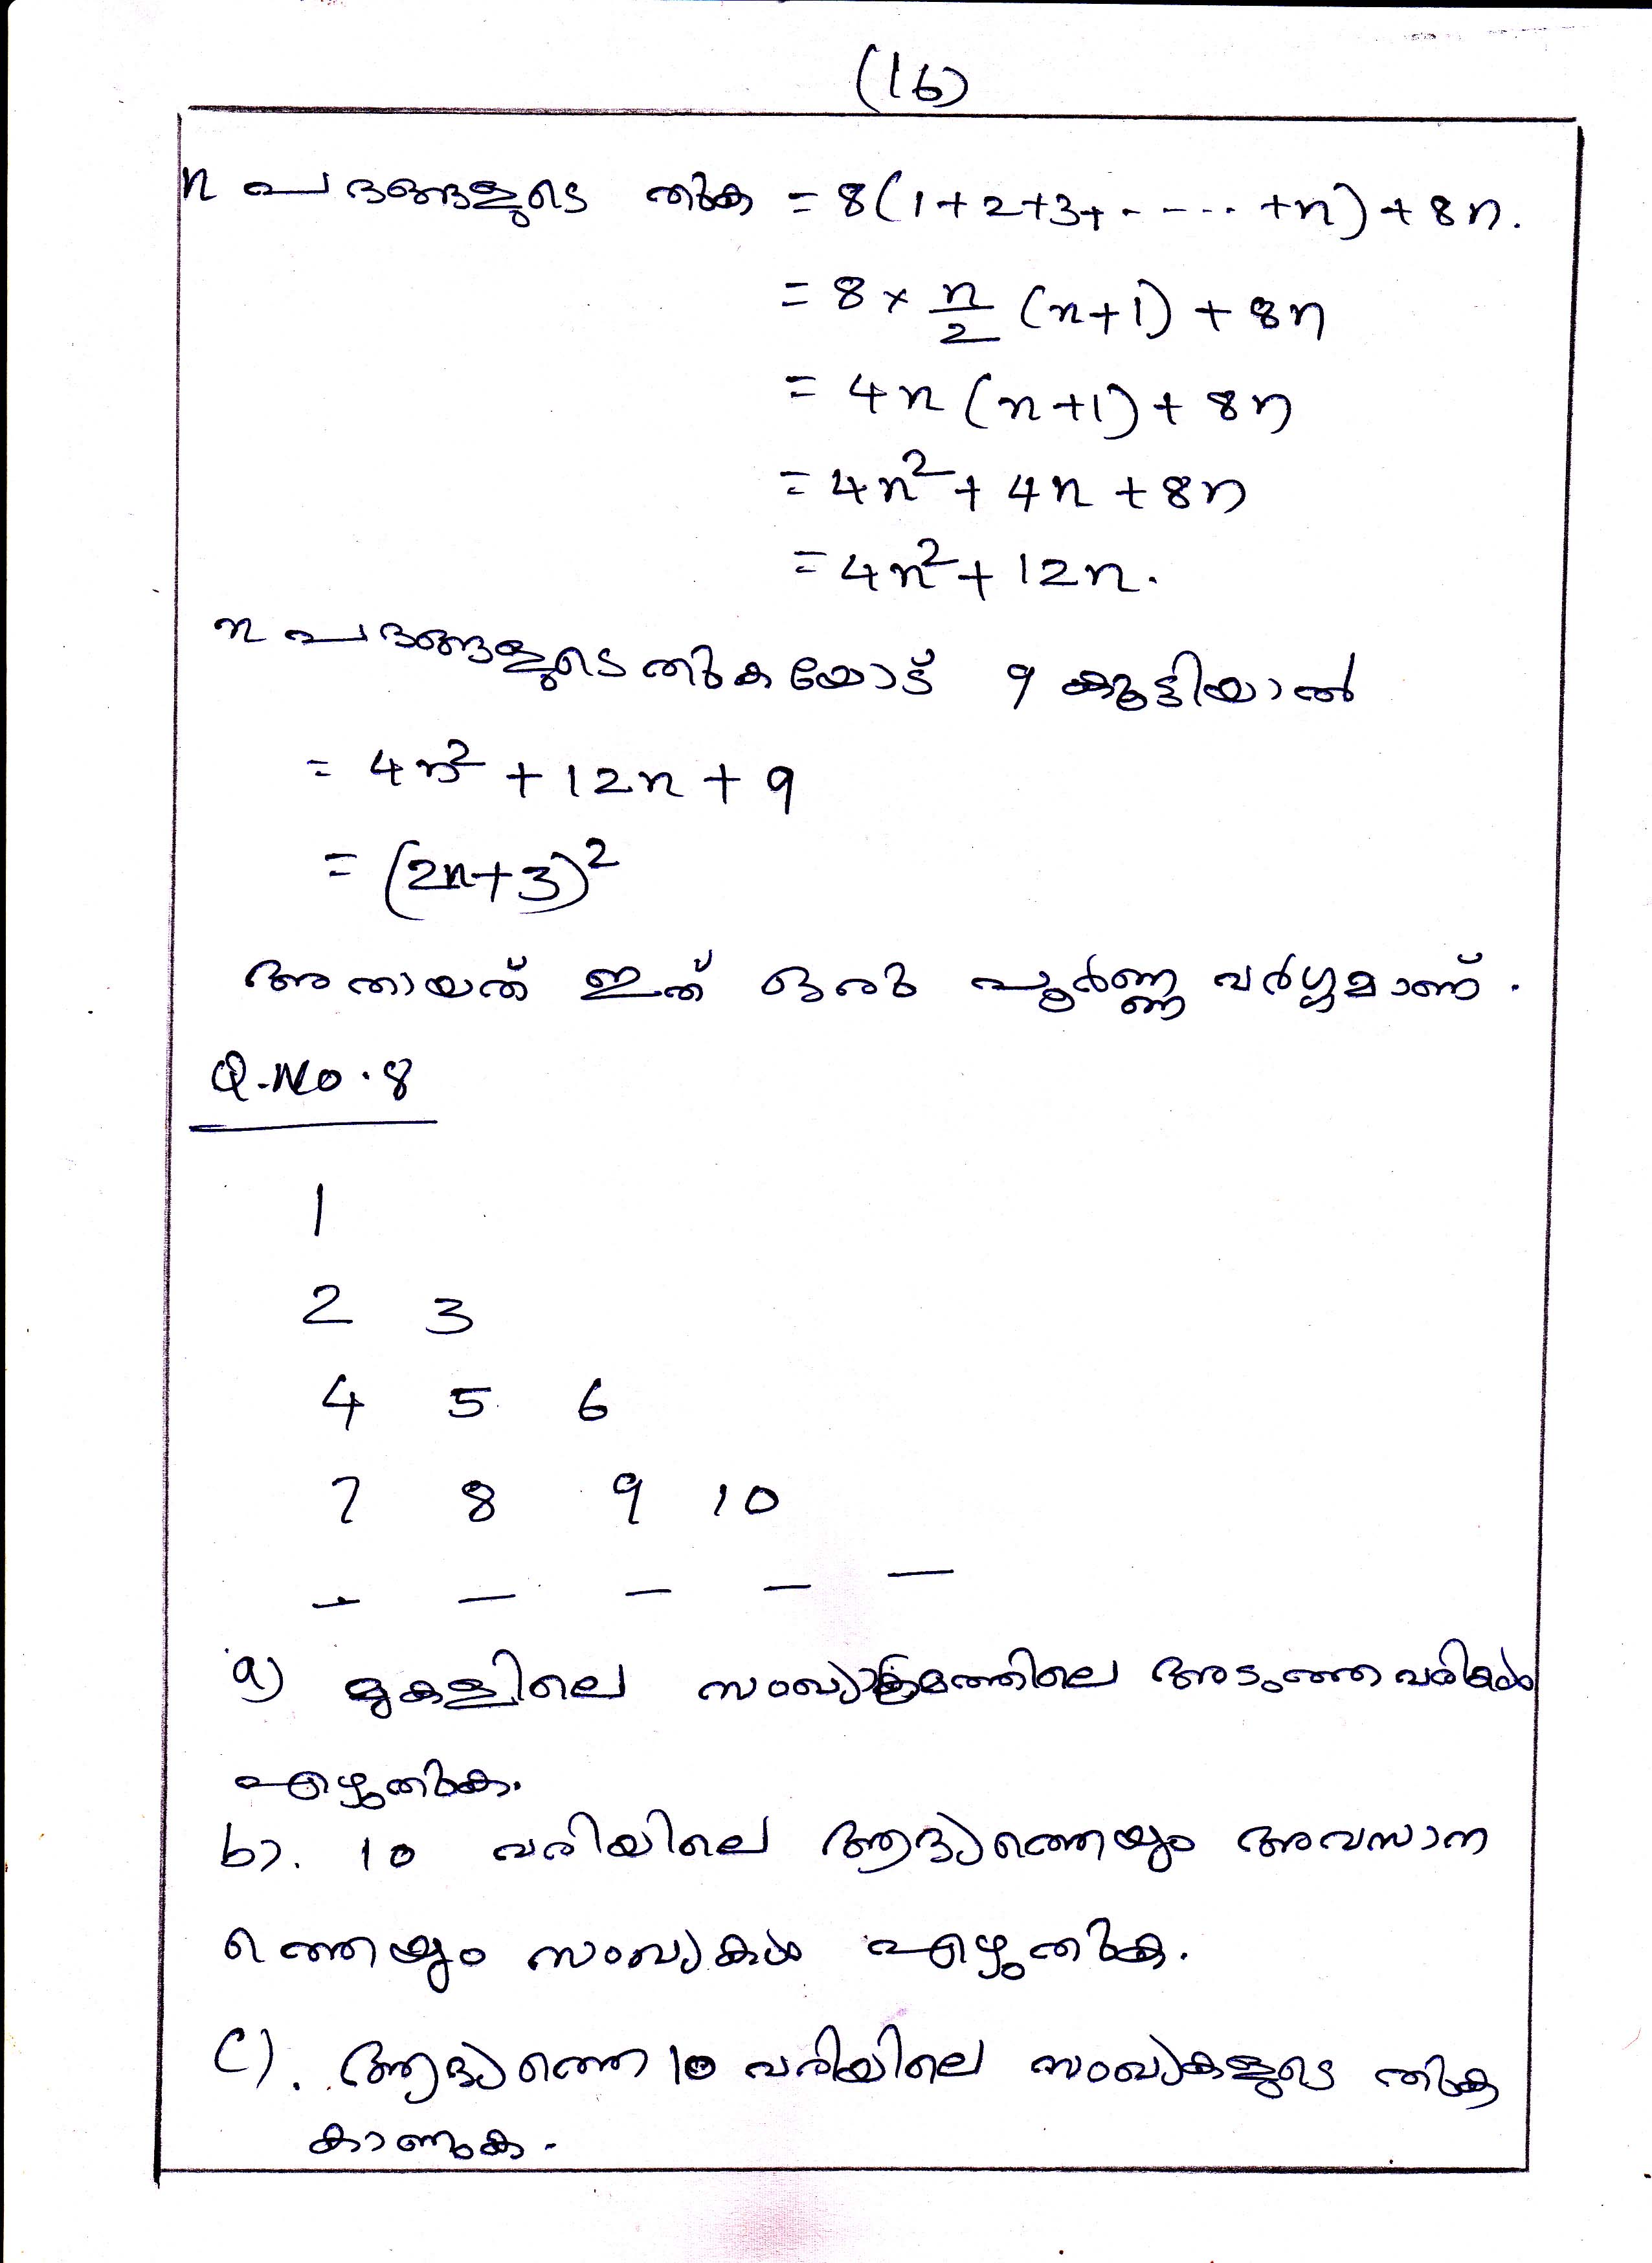 (16)
n പദങ്ങളുടെ തുക = 8(1+2+3+-----+n)+8n.
= 8 × n/2 (n+1) + 8n
= 4n (n+1) + 8n
= 4n² + 4n + 8n
= 4n² + 12n.
n പദങ്ങളുടെ തുകയോട് 9 കൂട്ടിയാൽ
= 4n² + 12n + 9
= (2n+3)²
അതായത് ഇത് ഒരു പൂർണ്ണ വർഗ്ഗമാണ്.
Q.No.8
1
2 3
4 5 6
7 8 9 10
— — — — —
a) മുകളിലെ സംഖ്യാക്രമത്തിലെ അടുത്ത വരികൾ
എഴുതുക.
b). 10 വരിയിലെ ആദ്യത്തെയും അവസാന
ത്തെയും സംഖ്യകൾ എഴുതുക.
C). ആദ്യത്തെ 10 വരിയിലെ സംഖ്യകളുടെ തുക
കാണുക.